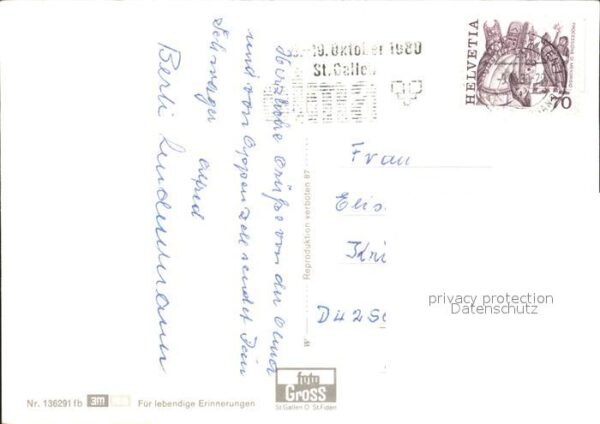 Herzliche Grüße von der Olma
und von Appenzell sendet Dein
Schwager Alfred
Berti Lindenmann
.-19. Oktober 1980
St. Gallen
HELVETIA
70
Frau
Elis
Kni
D 42 5
privacy protection
Datenschutz
Reproduktion verboten 87
W
foto
Gross
St. Gallen O St. Fiden
Nr. 136291 fb 3M Für lebendige Erinnerungen